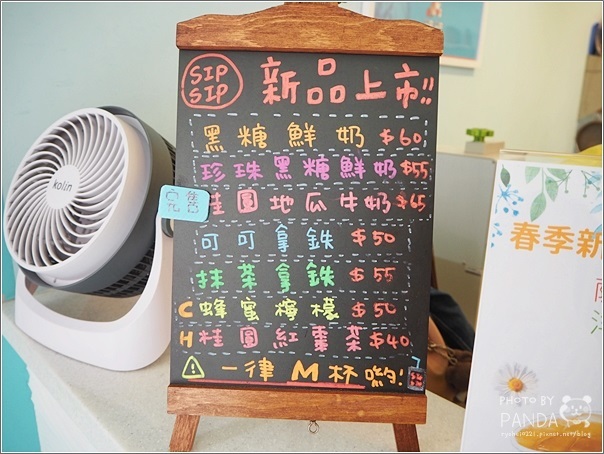 SIP
SIP
新品上市!!
黑糖鮮奶 $60
珍珠黑糖鮮奶 $55
完售
桂圓地瓜牛奶 $65
可可拿鉄 $50
抹茶拿鉄 $55
C 蜂蜜檸檬 $50
H 桂圓紅棗茶 $40
一律 M 杯喲!
kolin
春季新
PHOTO BY
PANDA